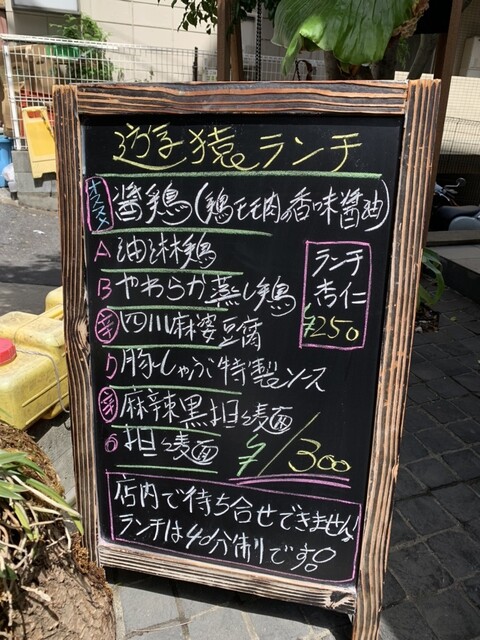 遊猿ランチ
オススメ 醤鶏(鶏モモ肉の香味醤油)
A 油淋鶏
B やわらか蒸し鶏
辛 四川麻婆豆腐
D 豚しゃぶ特製ソース
辛 麻辣黒担々麺
G 担々麺 ¥1300
ランチ
杏仁
¥250
店内で待ち合せできません!
ランチは40分制です。